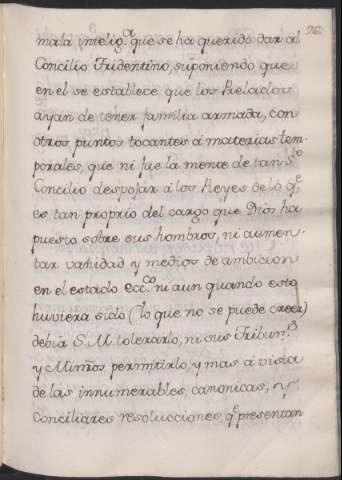 26
mala intelig.ª que se ha querido dar al
Concilio Tridentino, suponiendo que
en el se establece que los Prelados
ayan de tener familia armada, con
otros puntos tocantes á materias tem-
porales, que ni fue la mente de tan S.to
Concilio despojar á los Reyes de lo q.e
es tan proprio del cargo que Dios ha
puesto sobre sus hombros, ni aumen-
tar vanidad y medios de ambicion
en el estado ecc.co ni aun quando esto
huviera sido (lo que no se puede creer)
debia S. M. tolerarlo, ni sus Tribun.s
y Minros permitirlo, y mas á vista
de las innumerables, canonicas, y
conciliares resoluciones, q.e presentan